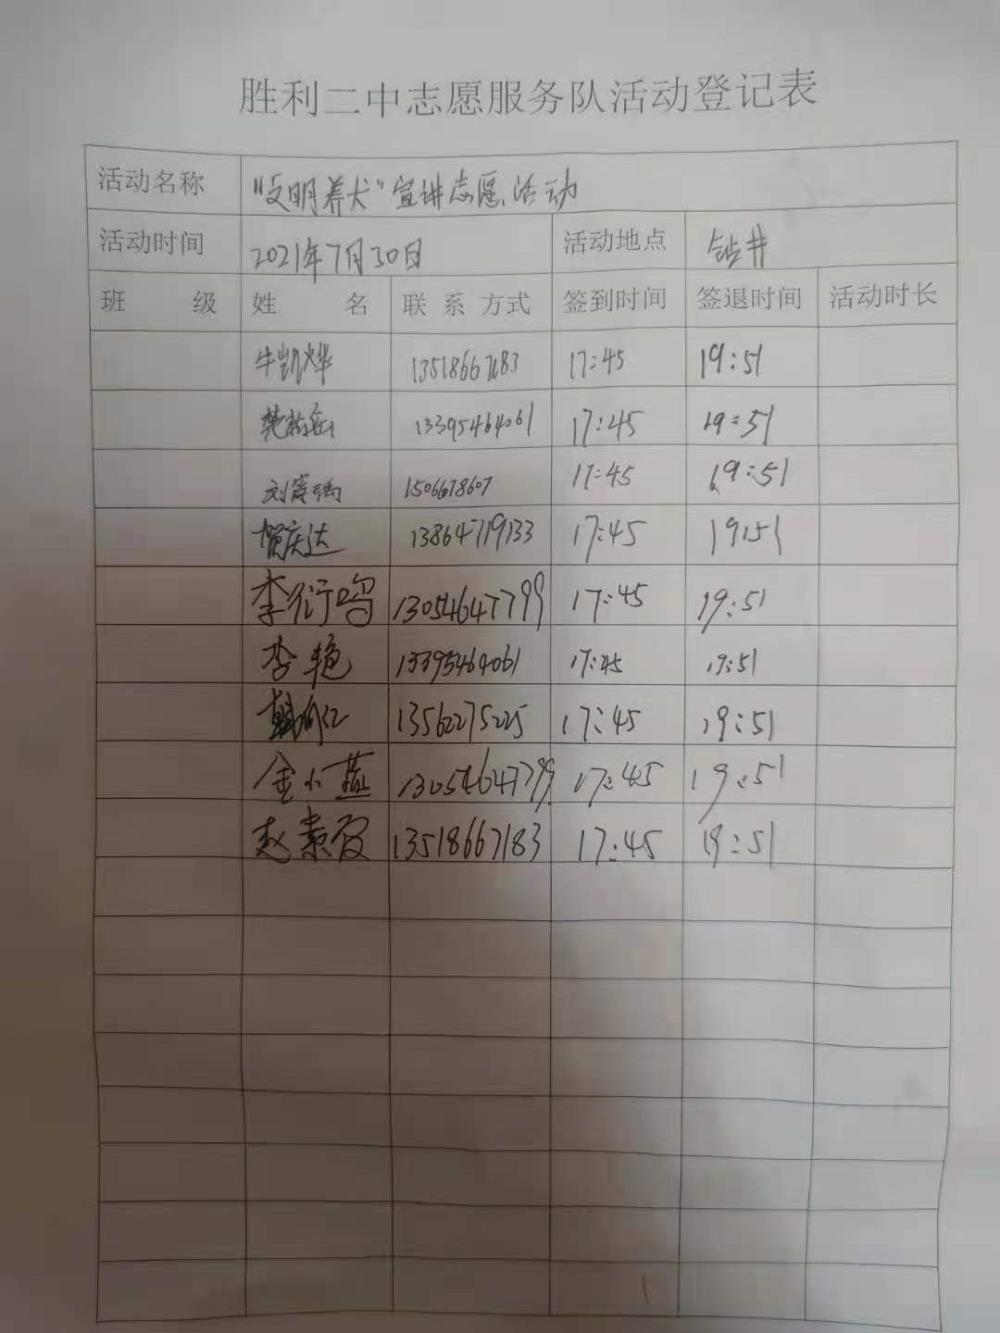 胜利二中志愿服务队活动登记表
活动名称 "文明养犬"宣讲志愿活动
活动时间 2021年7月30日 活动地点 钻井
班 级 姓 名 联 系 方式 签到时间 签退时间 活动时长
牛凯烨 13518667183 17:45 19:51
13395464061 17:45 19:51
刘 1506678607 17:45 19:51
贺庆达 13864719133 17:45 19:51
李衍鸣 13054647799 17:45 19:51
李艳 13395464061 17:45 19:51
韩 13562275225 17:45 19:51
金小燕 13054647799 17:45 19:51
赵素霞 13518667183 17:45 19:51